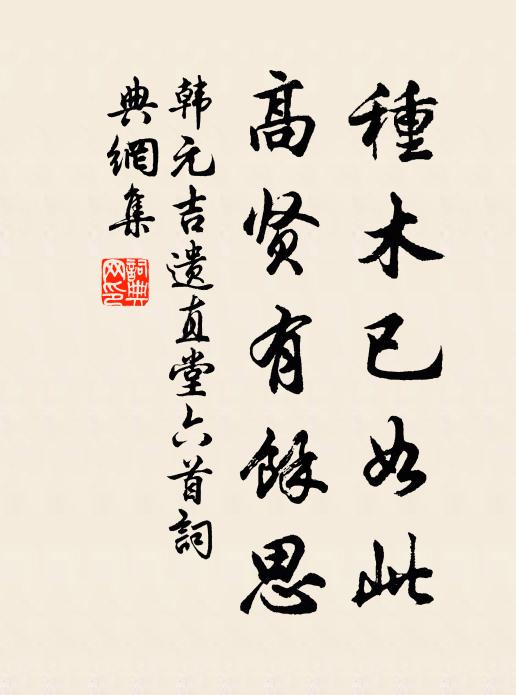 種木已如此
高贤有餘思
韩元吉遗直堂六首詞
典網集
詞典網印